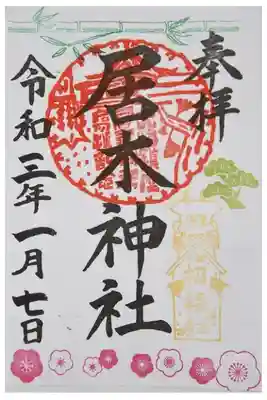 奉拝
居木神社
令和三年一月七日